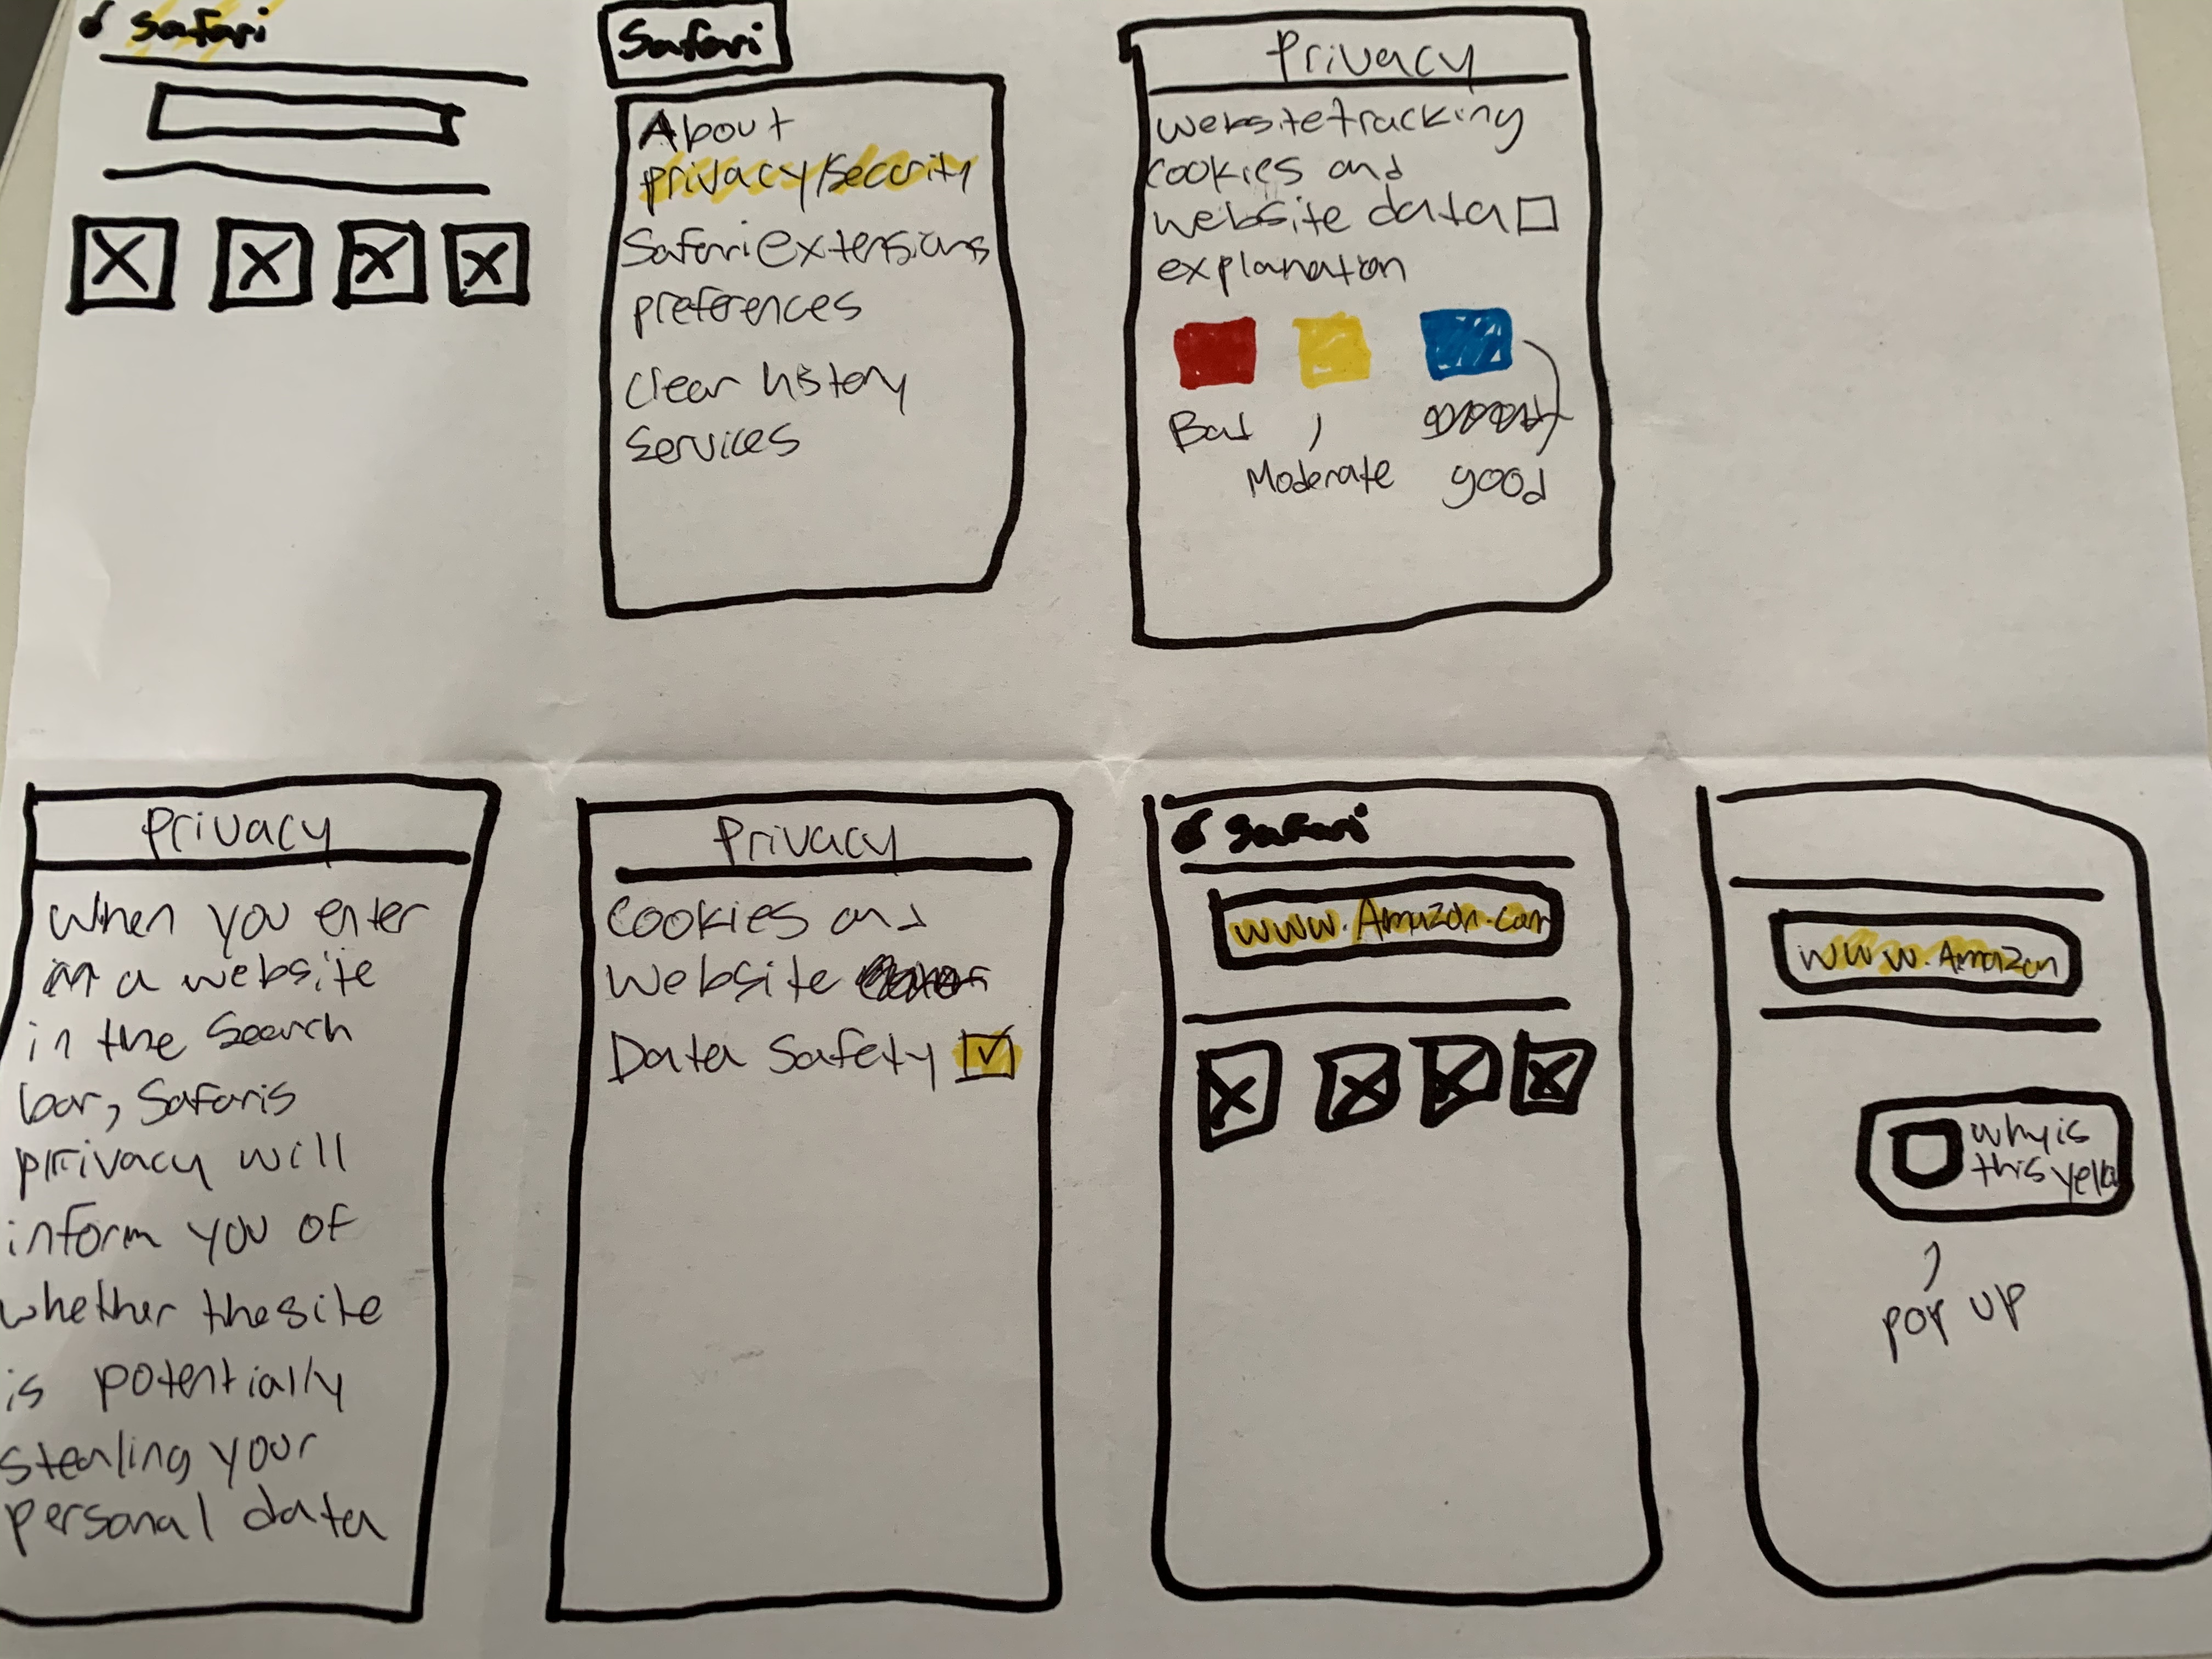 Safari
Safari
About
privacy/security
Safari extensions
preferences
Clear history
Services
Privacy
website tracking
cookies and
website data
explanation
Bad
Moderate
good
Privacy
When you enter
a website
in the search
bar, Safaris
privacy will
inform you of
whether the site
is potentially
stealing your
personal data
Privacy
Cookies and
Website
Data Safety
Safari
www.Amazon.com
www.Amazon
why is
this yello
pop up